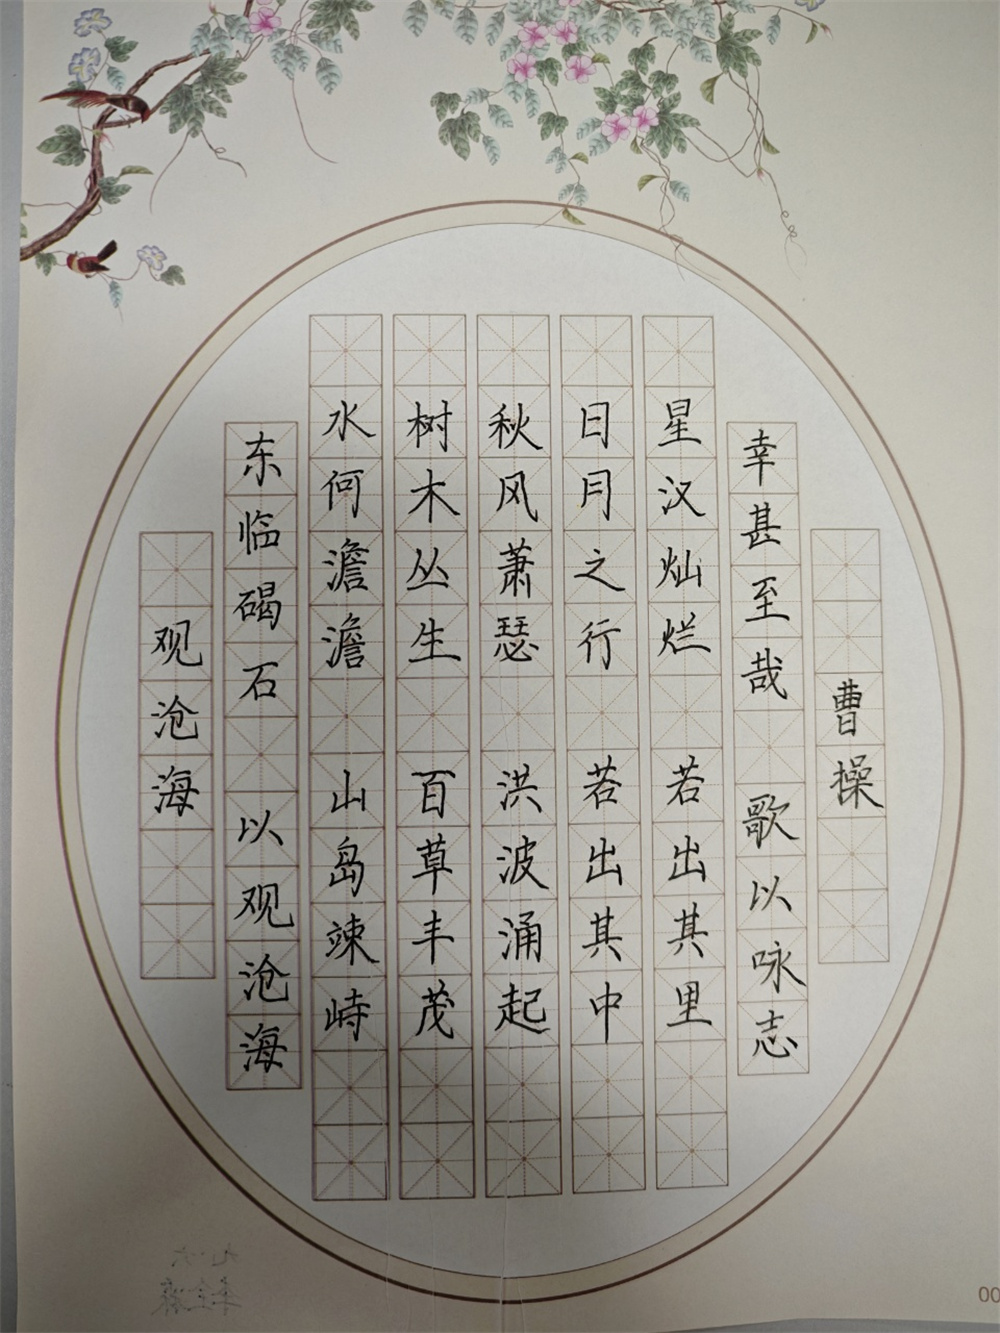 观沧海
东临碣石 以观沧海
水何澹澹 山岛竦峙
树木丛生 百草丰茂
秋风萧瑟 洪波涌起
日月之行 若出其中
星汉灿烂 若出其里
幸甚至哉 歌以咏志
曹操
00